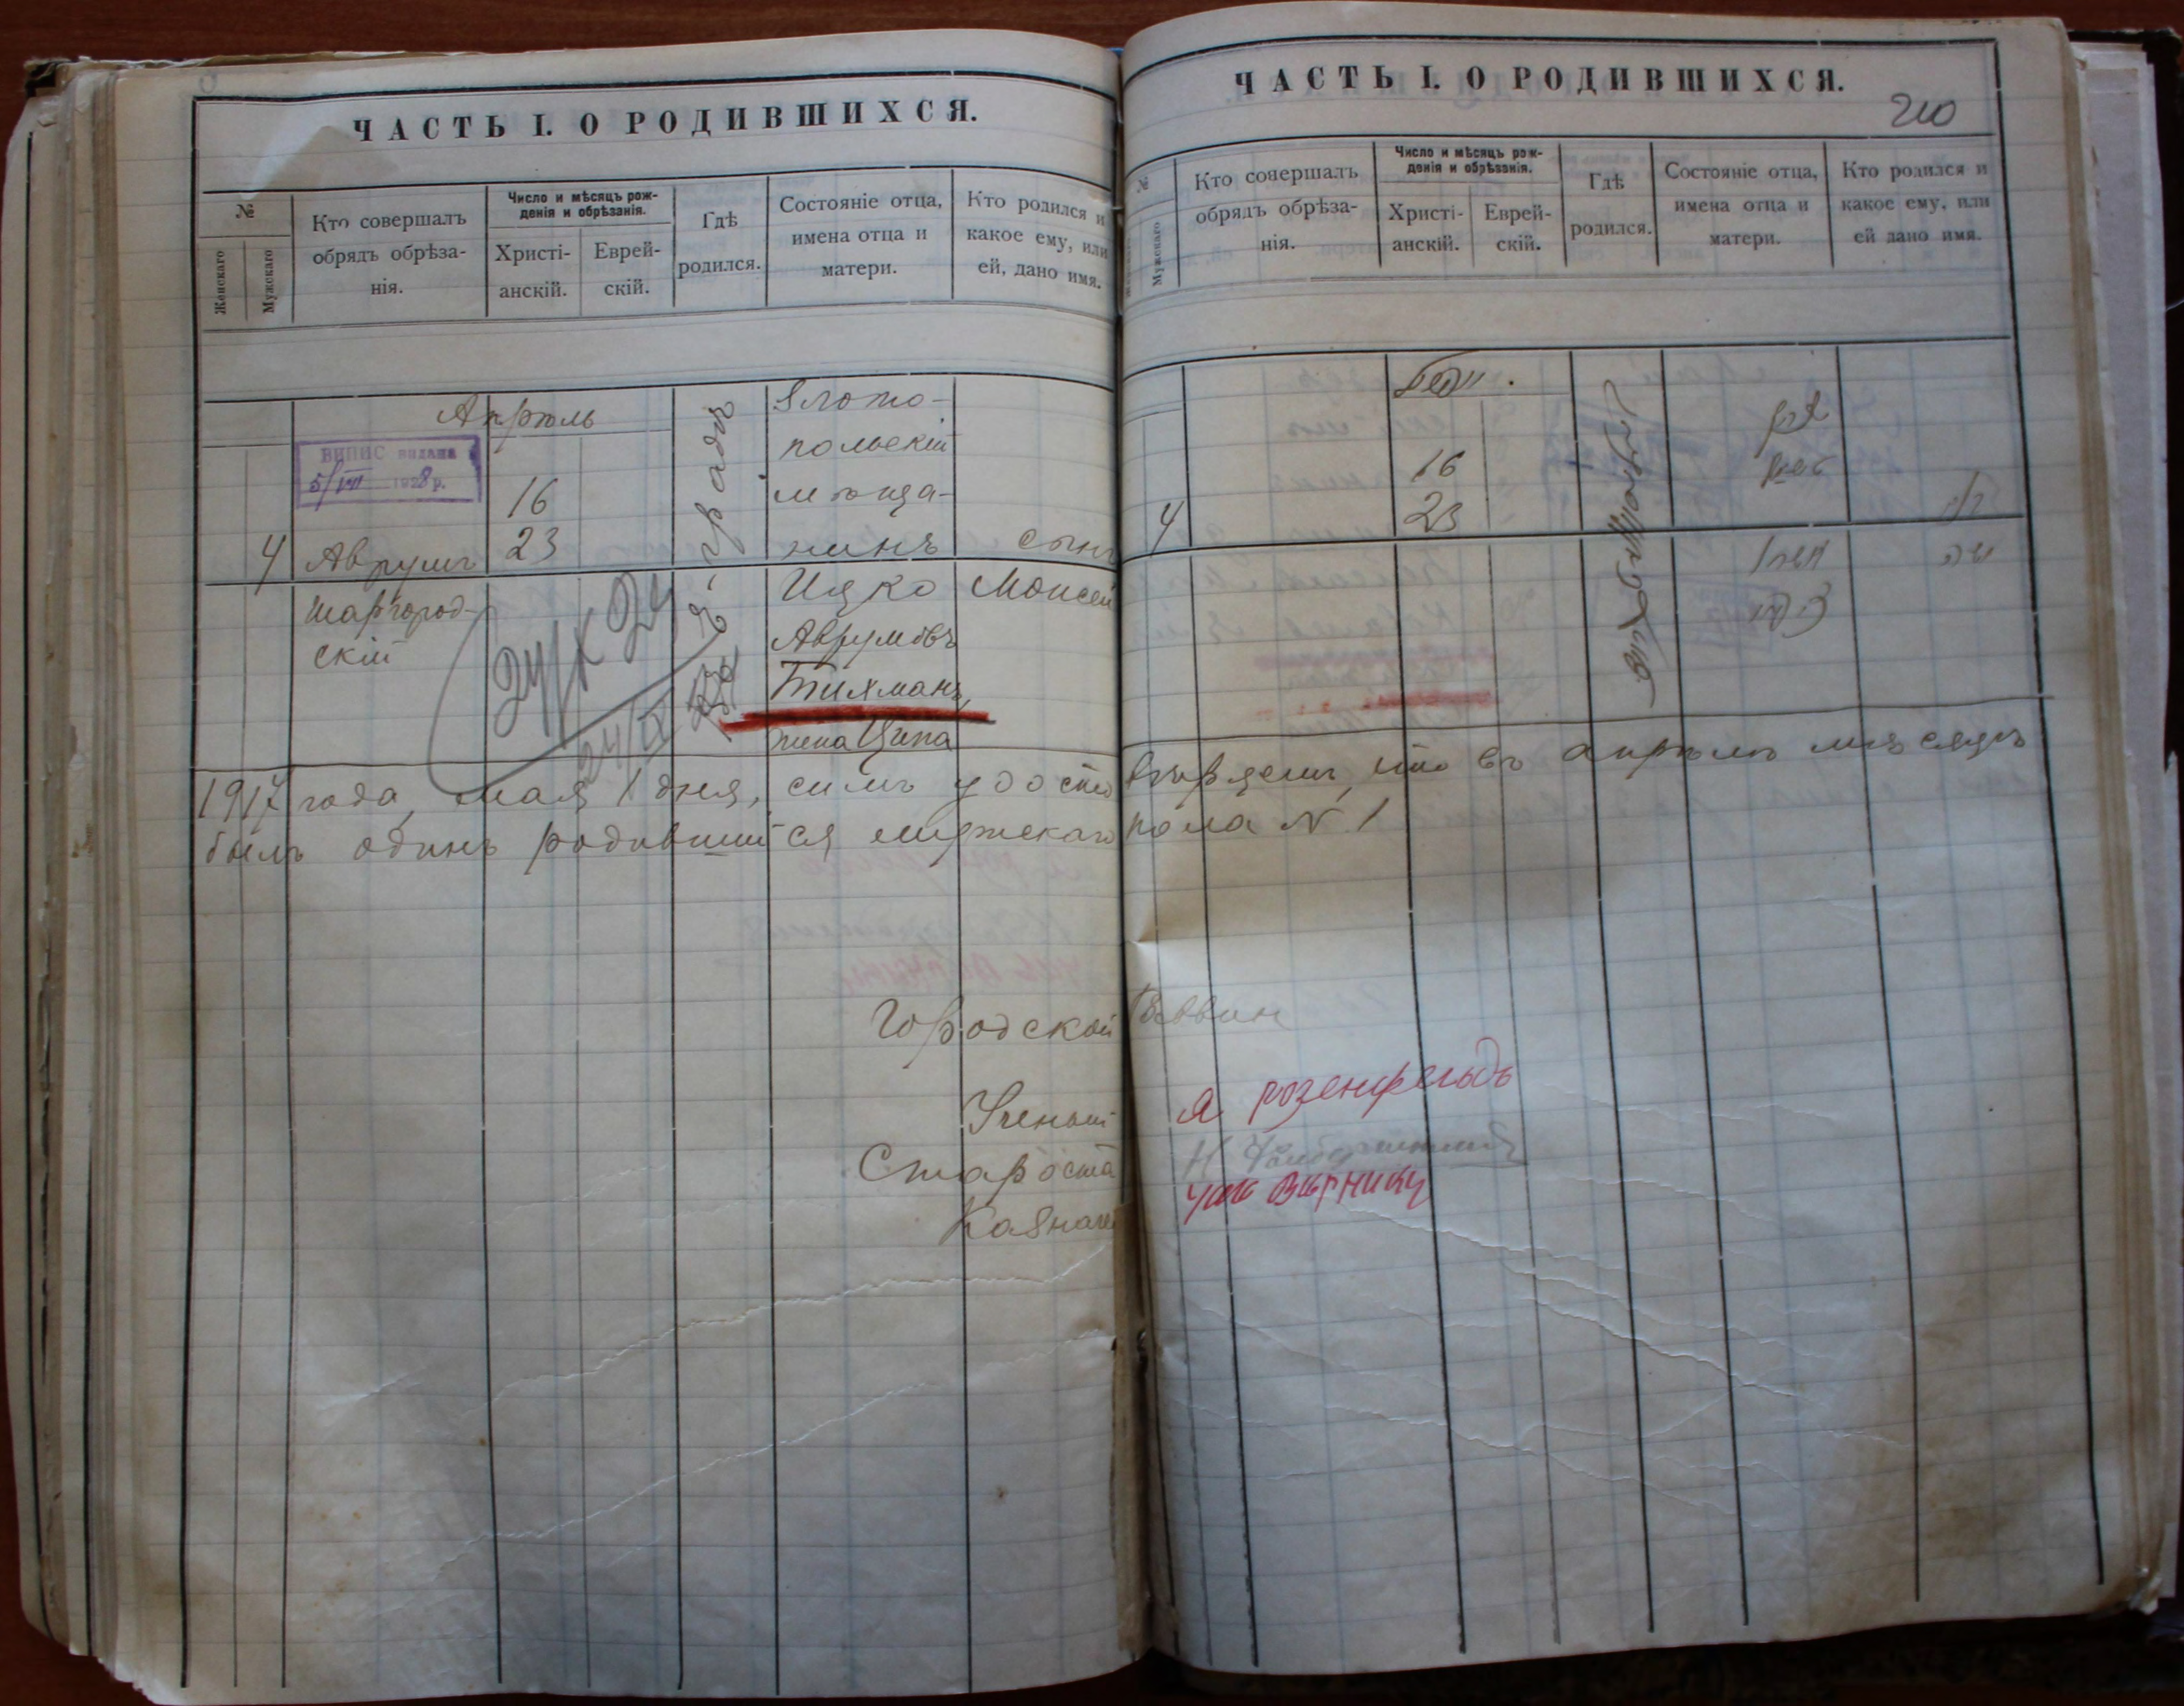 ЧАСТЬ I. О РОДИВШИХСЯ.
№
Женскаго
Мужскаго
Кто совершалъ
обрядъ обрѣза-
нія.
Число и мѣсяцъ рож-
денія и обрѣзанія.
Христі-
анскій.
Еврей-
скій.
Гдѣ
родился.
Состояніе отца,
имена отца и
матери.
Кто родился и
какое ему, или
ей, дано имя.
Апрѣль
ВИПИС видана
5/VII 1928 р.
4
Аврумъ
Шаргород-
скій
16
23
Е-градѣ
Злото-
польскій
мѣща-
нинъ
Ицко
Аврумовъ
Тихманъ,
жена Ципа
сынъ
Моисей
24/IX 24
ЧАСТЬ I. О РОДИВШИХСЯ.
210
№
Мужскаго
Кто совершалъ
обрядъ обрѣза-
нія.
Число и мѣсяцъ рож-
денія и обрѣзанія.
Христі-
анскій.
Еврей-
скій.
Гдѣ
родился.
Состояніе отца,
имена отца и
матери.
Кто родился и
какое ему, или
ей дано имя.
4
16
23
1917 года, мая 1 дня, симъ удостовѣряемъ, что въ апрѣлѣ мѣсяцѣ
былъ одинъ родившийся мужскаго пола № 1
Городской Раввин
Ученый
Староста
Казначей
Я Розенфельдъ